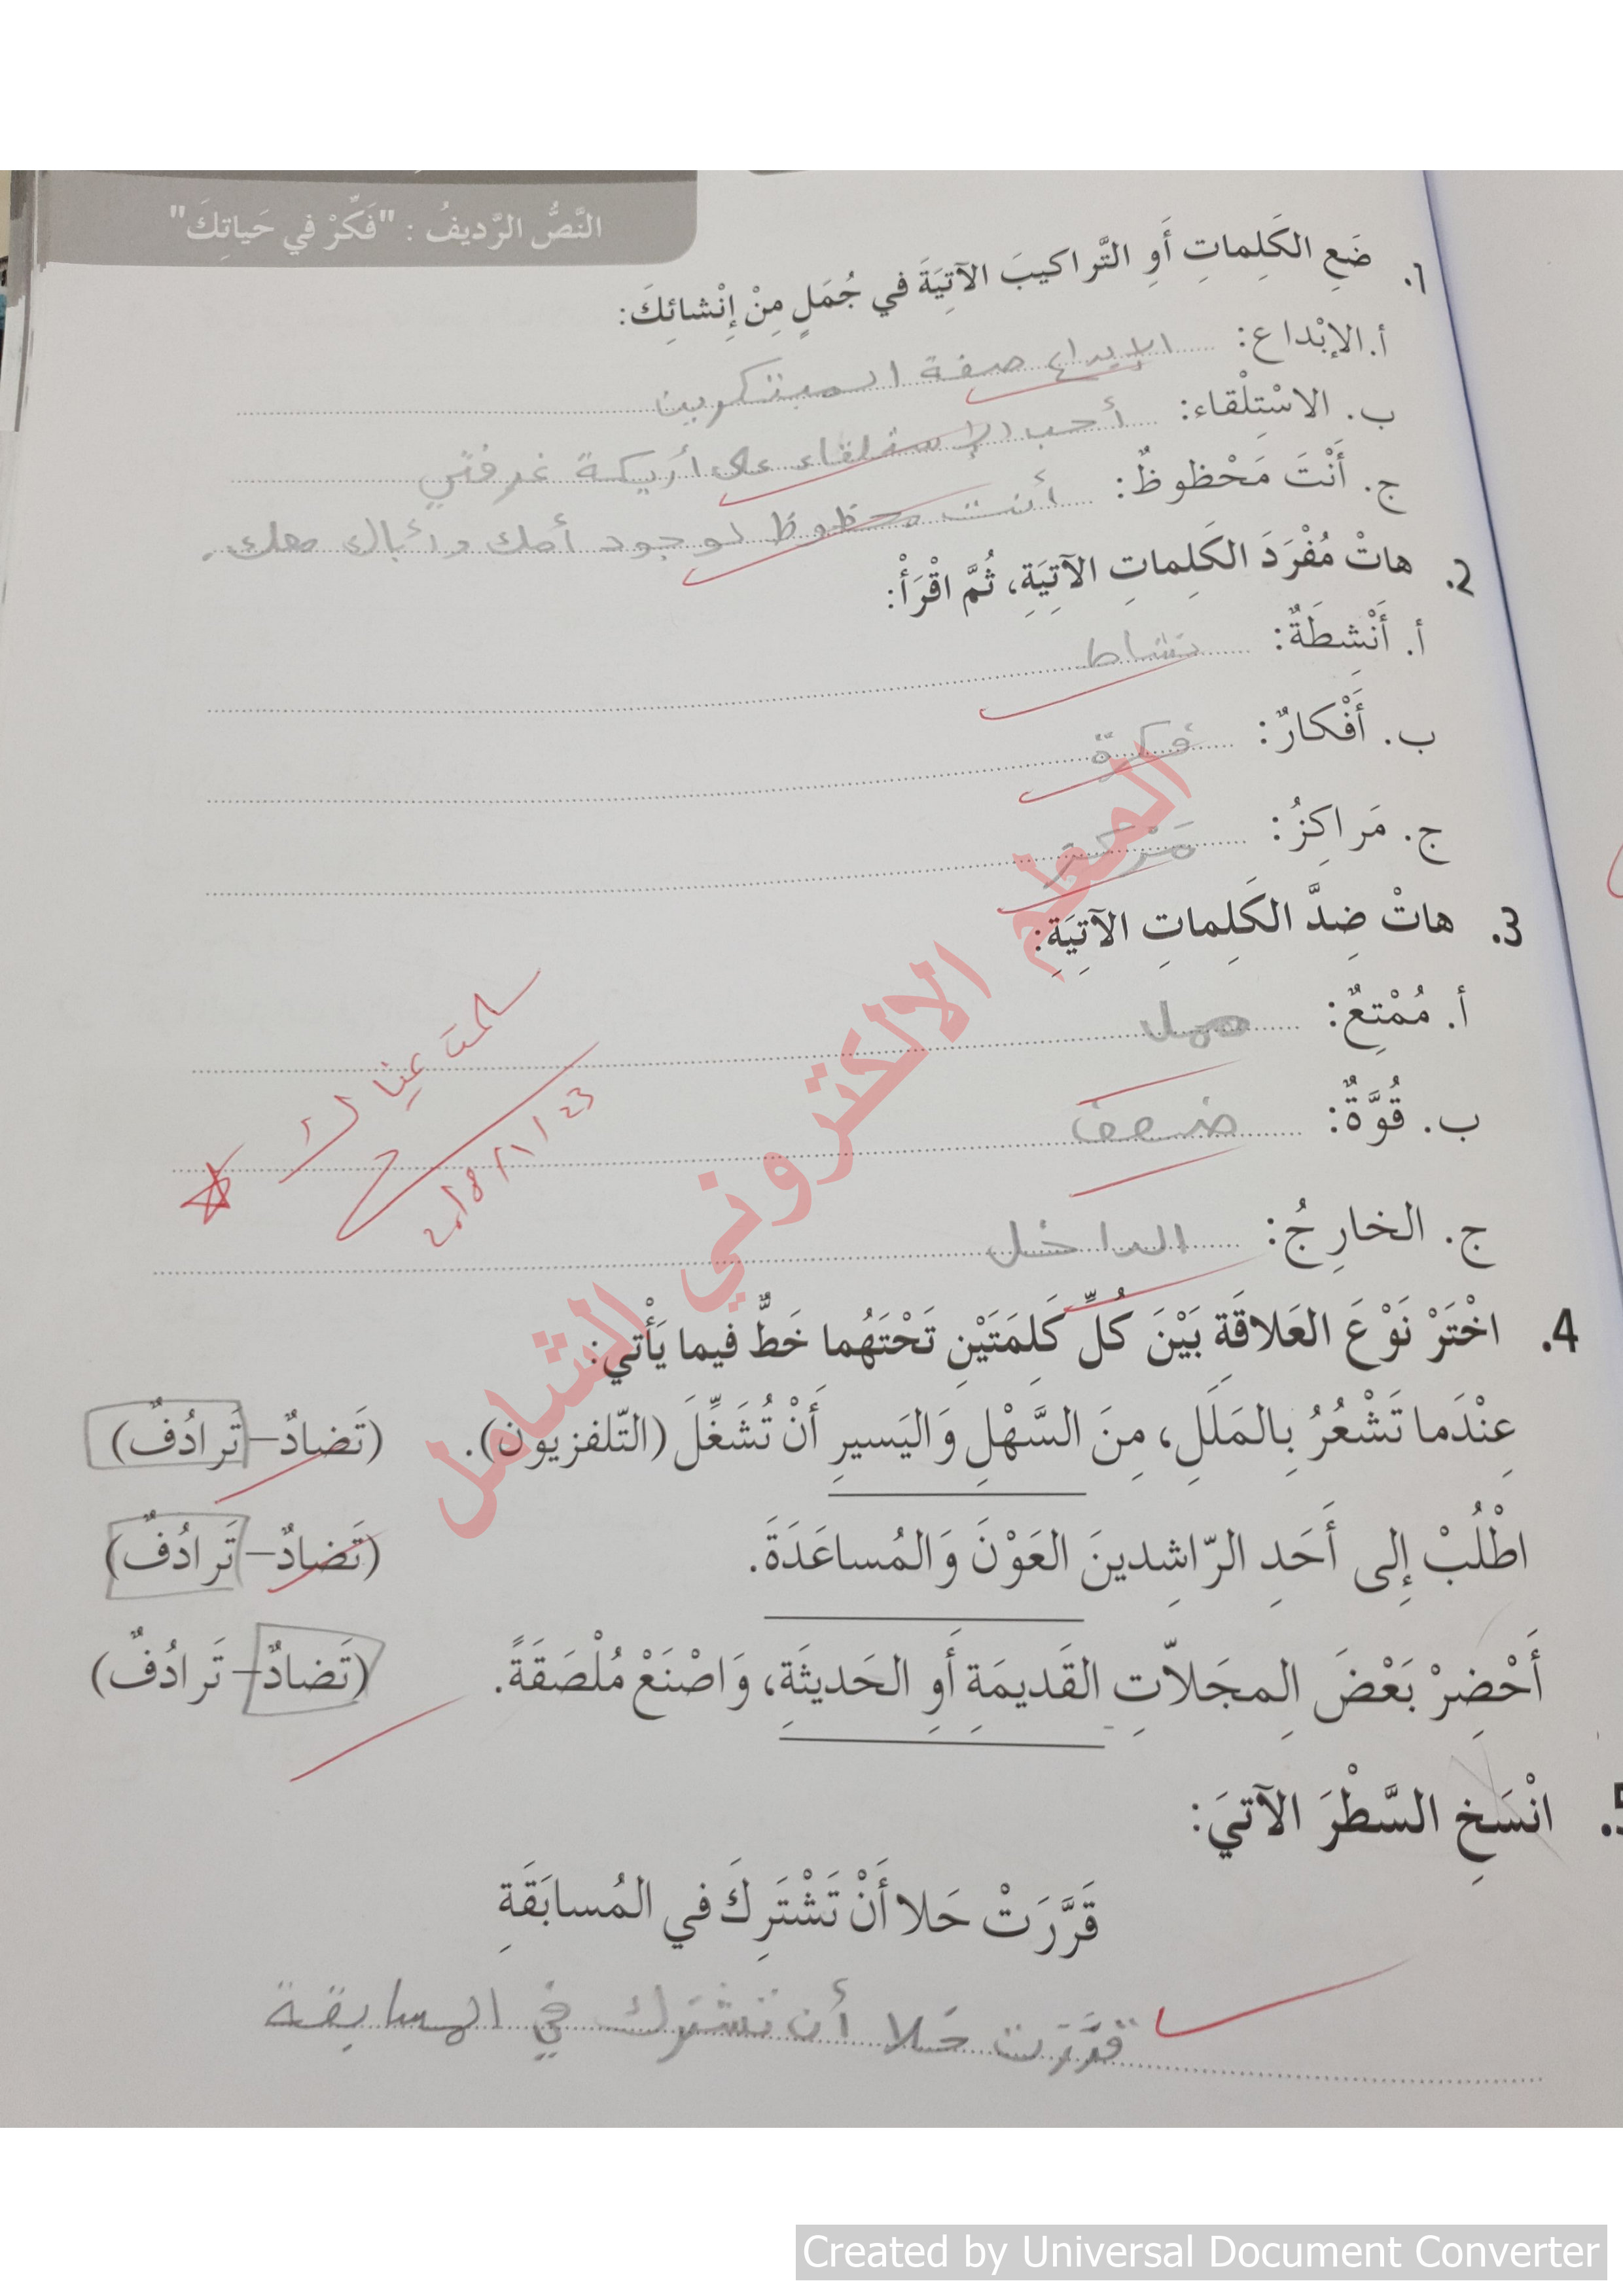 النَّصُّ الرَّديفُ : "فَكِّرْ في حَياتِكَ"
1. ضَعِ الكَلِماتِ أَوِ التَّراكيبَ الآتِيَةَ في جُمَلٍ مِنْ إِنْشائِكَ:
أ. الإِبْداع: الإبداع صفة المبتكرين
ب. الاسْتِلْقاء: أحب الإستلقاء على أريكة غرفتي
ج. أَنْتَ مَحْظوظٌ: أنت محظوظ لوجود أمك وأباك معك.
2. هاتْ مُفْرَدَ الكَلِماتِ الآتِيَةِ، ثُمَّ اقْرَأْ:
أ. أَنْشِطَةٌ: نشاط
ب. أَفْكارٌ: فكرة
ج. مَراكِزُ: مَرْكز
3. هاتْ ضِدَّ الكَلِماتِ الآتِيَةِ:
أ. مُمْتِعٌ: ممل
ب. قُوَّةٌ: ضعف
ج. الخارِجُ: الداخل
سلمت عيناك
4. اخْتَرْ نَوْعَ العَلاقَةِ بَيْنَ كُلِّ كَلِمَتَيْنِ تَحْتَهُما خَطٌّ فيما يَأْتي:
عِنْدَما تَشْعُرُ بِالمَلَلِ، مِنَ السَّهْلِ وَاليَسيرِ أَنْ تُشَغِّلَ (التّلفزيون). (تَضادٌ – تَرادُفٌ)
اطْلُبْ إِلى أَحَدِ الرّاشِدينَ العَوْنَ وَالمُساعَدَةَ. (تَضادٌ – تَرادُفٌ)
أَحْضِرْ بَعْضَ المِجَلاّتِ القَديمَةِ أَوِ الحَديثَةِ، وَاصْنَعْ مُلْصَقَةً. (تَضادٌ – تَرادُفٌ)
5. انْسَخِ السَّطْرَ الآتيَ:
قَرَّرَتْ حَلا أَنْ تَشْتَرِكَ في المُسابَقَةِ
قرَّرَت حَلا أن تشترك في المسابقة
المعلم الالكتروني الشامل
Created by Universal Document Converter